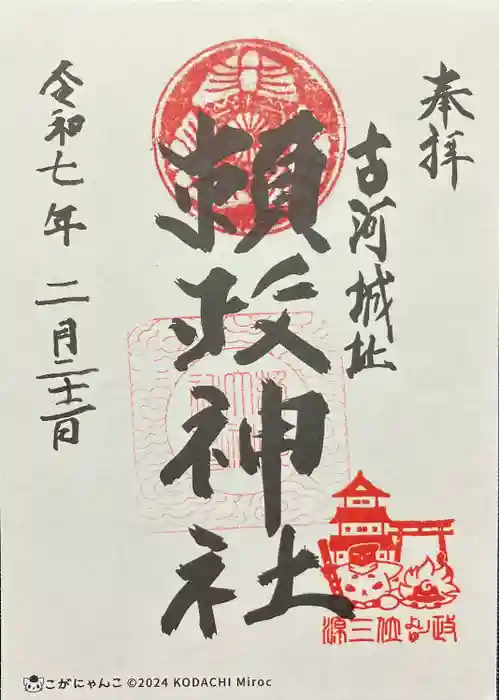 奉拝
古河城址
頼政神社
令和七年 二月二十二日
源三位頼政
こがにゃんこ ©2024 KODACHI Miroc